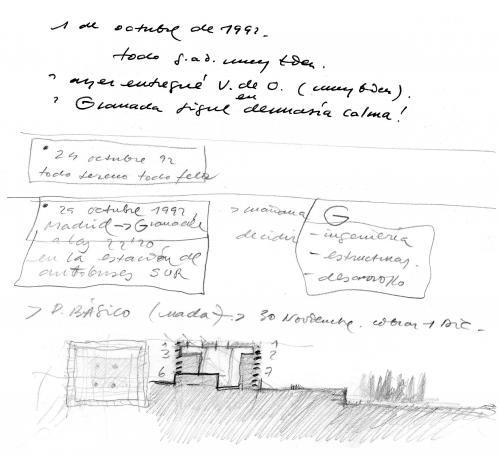 1 de octubre de 1992.
todo g.ad. muy bien.
> ayer entregué V. de O. (muy bien).
> Granada sigue en demasía calma!
• 29 octubre 92
todo sereno todo feliz
• 29 octubre 1992
Madrid → Granada
a las 22'20
en la estación de
autobuses SUR
> mañana
decidir
G
- ingeniería
- estructuras.
- desarrollo
> P. BÁSICO (nada) → 30 Noviembre. cobrar 1 Dic. -
1
3 2
6 7